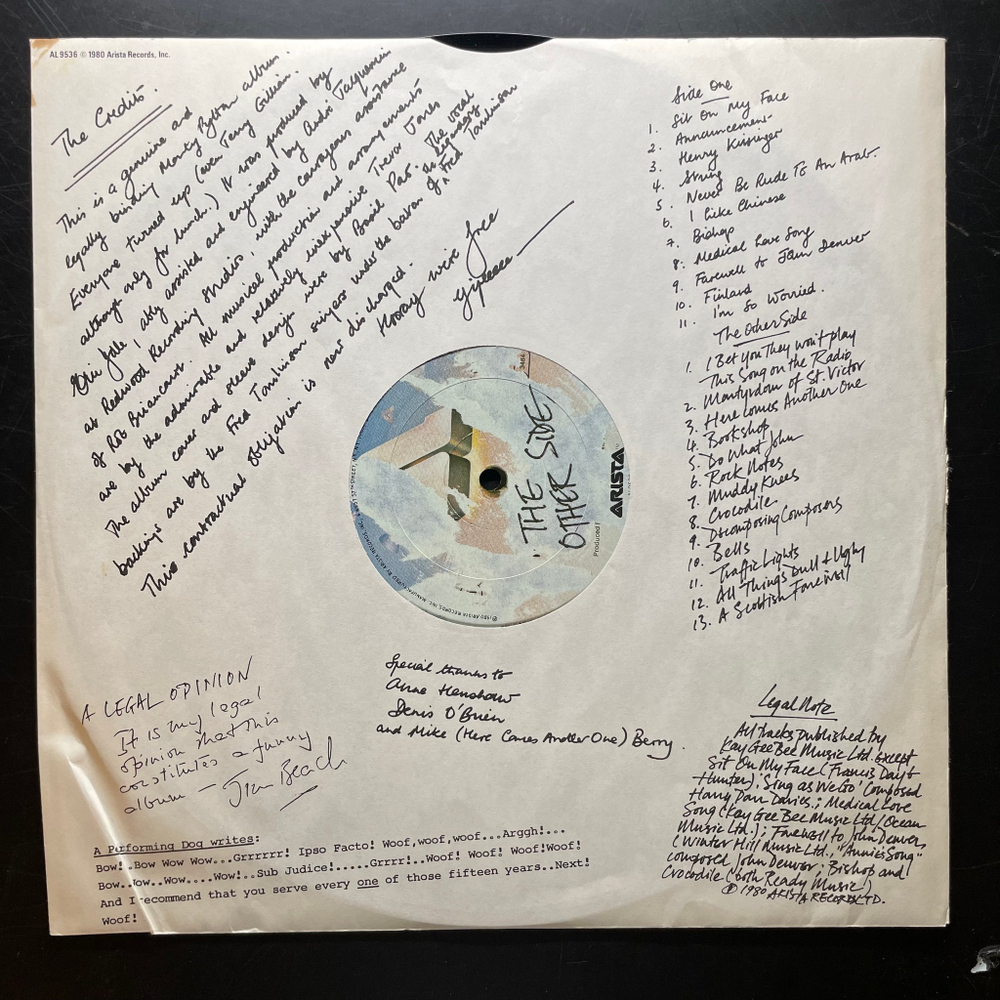 AL 9536 © 1980 Arista Records, Inc.
The Credits.
This is a genuine and
legally binding Monty Python album.
Everyone turned up (even Terry Gilliam.
although only for lunch.) It was produced by
Eric Idle, ably assisted and engineered by André Jacquemin
at Redwood Recording Studios, with the courageous assistance
of Rob Briancourt. All musical production and arrangements
are by the admirable and relatively inexpensive Trevor Jones
The album cover and sleeve design were by Basil Pao. The vocal
backings are by the Fred Tomlinson singers under the baton of the legendary Fred Tomlinson
This contractual obligation is now discharged.
Hooray we're free
Yipeeee
Side One
1. Sit On My Face
2. Announcement
3. Henry Kissinger
4. String
5. Never Be Rude To An Arab.
6. I Like Chinese
7. Bishop
8. Medical Love Song
9. Farewell to John Denver
10. Finland
11. I'm So Worried.
The Other Side
1. I Bet You They Won't play
This Song on the Radio
2. Martyrdom of St. Victor
3. Here Comes Another One
4. Bookshop
5. Do What John
6. Rock Notes
7. Muddy Knees
8. Crocodile
9. Decomposing Composers
10. Bells
11. Traffic Lights
12. All Things Dull & Ugly
13. A Scottish Farewell
THE
OTHER SIDE.
ARISTA
A LEGAL OPINION
It is my legal
opinion that this
constitutes a funny
album – Jim Beach
Special thanks to
Anne Henshaw
Denis O'Brien
and Mike (Here Comes Another One) Berry.
Legal Note
All tracks published by
Kay Gee Bee Music Ltd. except
Sit On My Face (Francis Day &
Hunter); 'Sing as We Go' Composed
Harry Parr Davies.; Medical Love
Song (Kay Gee Bee Music Ltd/Ocean
Music Ltd.); Farewell to John Denver,
(Winter Hill Music Ltd., "Annie's Song"
composed John Denver; Bishop and
Crocodile (both Ready Music)
℗ 1980 ARISTA RECORDS LTD.
A Performing Dog writes:
Bow!..Bow Wow Wow...Grrrrrr! Ipso Facto! Woof,woof,woof...Arggh!...
Bow..Wow..Wow....Wow!..Sub Judice!.....Grrrr!..Woof! Woof! Woof!Woof!
And I recommend that you serve every one of those fifteen years..Next!
Woof!